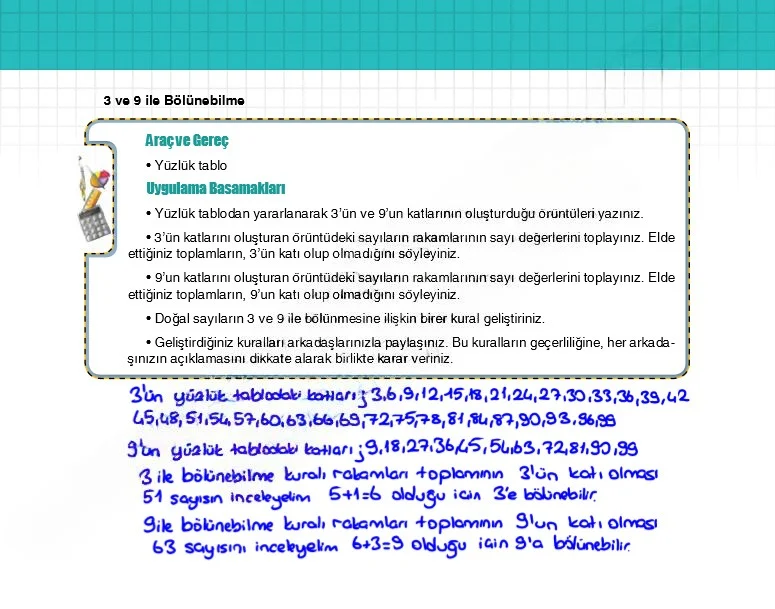 3 ve 9 ile Bölünebilme
Araç ve Gereç
• Yüzlük tablo
Uygulama Basamakları
• Yüzlük tablodan yararlanarak 3’ün ve 9’un katlarının oluşturduğu örüntüleri yazınız.
• 3’ün katlarını oluşturan örüntüdeki sayıların rakamlarının sayı değerlerini toplayınız. Elde
ettiğiniz toplamların, 3’ün katı olup olmadığını söyleyiniz.
• 9’un katlarını oluşturan örüntüdeki sayıların rakamlarının sayı değerlerini toplayınız. Elde
ettiğiniz toplamların, 9’un katı olup olmadığını söyleyiniz.
• Doğal sayıların 3 ve 9 ile bölünmesine ilişkin birer kural geliştiriniz.
• Geliştirdiğiniz kuralları arkadaşlarınızla paylaşınız. Bu kuralların geçerliliğine, her arkada-
şınızın açıklamasını dikkate alarak birlikte karar veriniz.
3'ün yüzlük tablodaki katları; 3,6,9,12,15,18,21,24,27,30,33,36,39,42
45,48,51,54,57,60,63,66,69,72,75,78,81,84,87,90,93,96,99
9'un yüzlük tablodaki katları; 9,18,27,36,45,54,63,72,81,90,99
3 ile bölünebilme kuralı rakamları toplamının 3'ün katı olması
51 sayısın inceleyelim 5+1=6 olduğu için 3'e bölünebilir.
9 ile bölünebilme kuralı rakamları toplamının 9'un katı olması
63 sayısını inceleyelim 6+3=9 olduğu için 9'a bölünebilir.